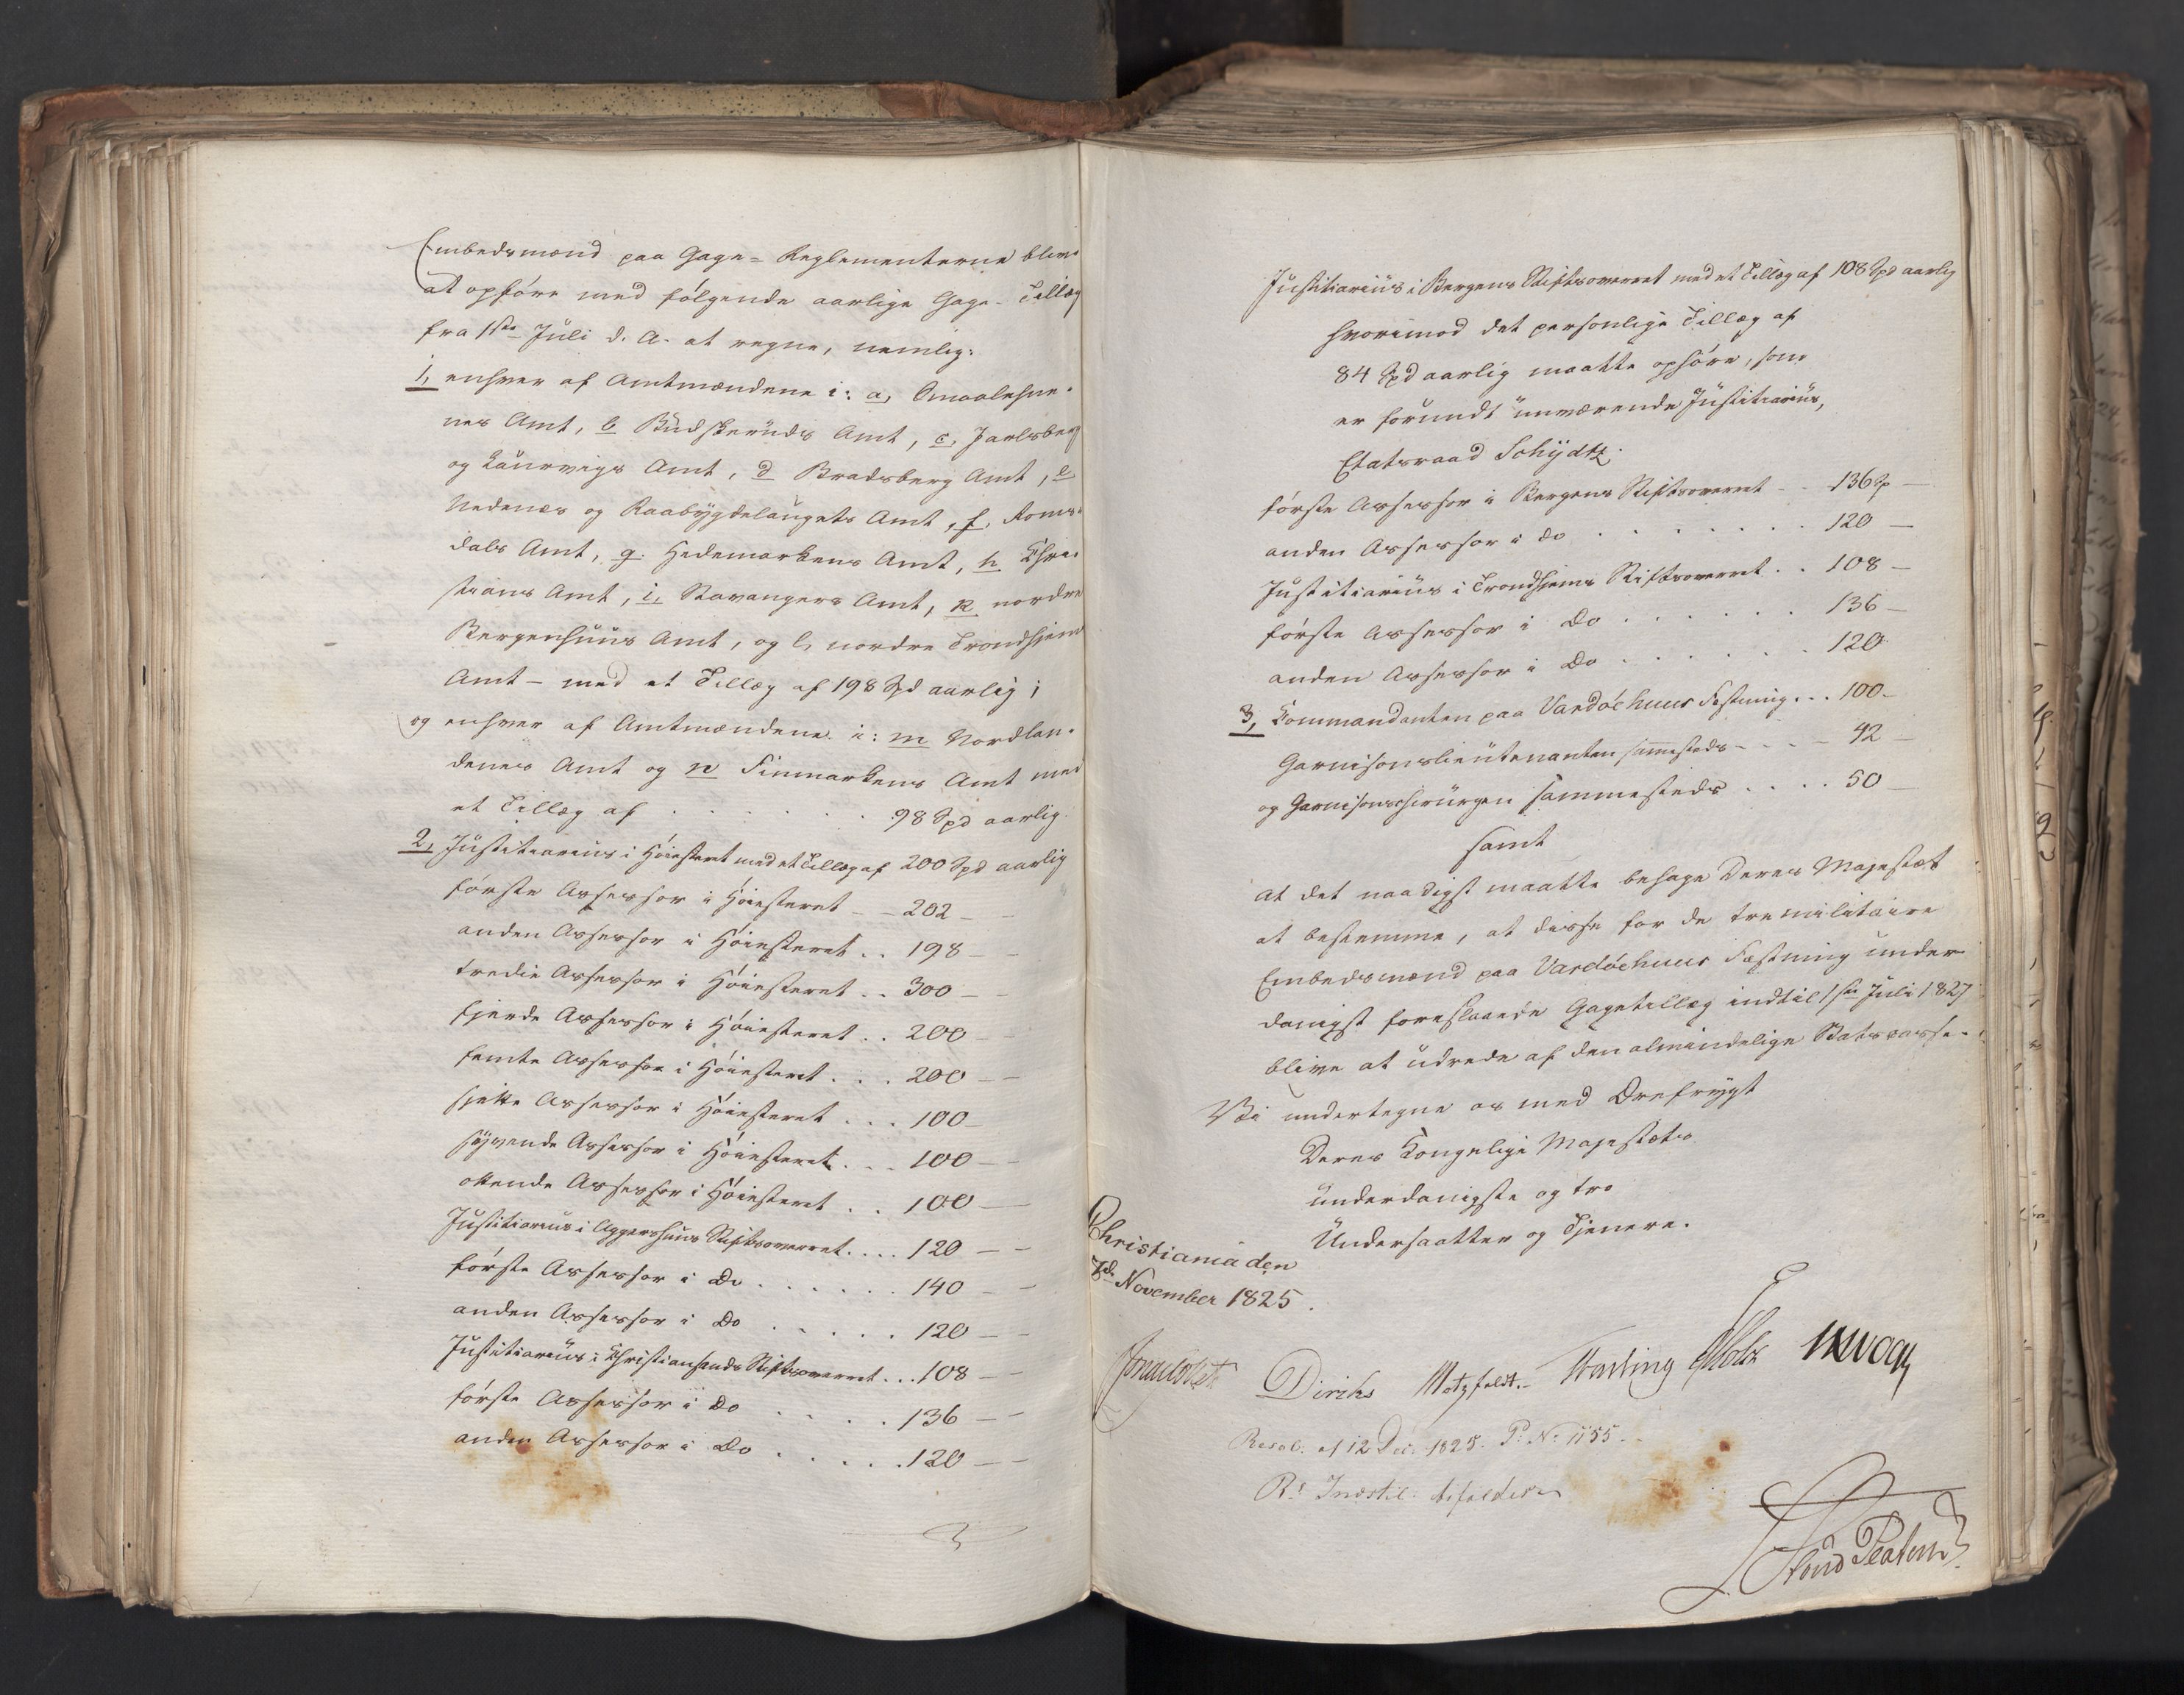 Embedsmænd paa Gage=Reglementerne blive
at opföre med fölgende aarlige Gage-Tillæg
fra 1ste Juli d. A. at regne, nemlig:
1, enhver af Amtmændene i: a, Smaalehne-
nes Amt, b Budskeruds Amt, c, Jarlsberg
og Laurvigs Amt, d Bradsberg Amt, e
Nedenæs og Raabygdelaugets Amt, f, Roms-
dals Amt, g. Hedemarkens Amt, h Chri-
stians Amt, i, Stavangers Amt, k nordre
Bergenhuus Amt, og l, nordre Trondhjems
Amt – med et Tillæg af 198 Spd aarlig;
og enhver af Amtmændene i: m Nordlan-
denes Amt og n Finmarkens Amt med
et Tillæg af . . . . . . . 98 Spd aarlig.
2, Justitiarius i Höiesteret med et Tillæg af 200 Spd aarlig
förste Assessor i Höiesteret – – 202 – –
anden Assessor i Höiesteret . . 198 – –
tredie Assessor i Höiesteret . . 300 – –
fjerde Assessor i Höiesteret . . 200 – –
femte Assessor i Höiesteret . . . 200 – –
sjette Assessor i Höiesteret . . . 100 –
syvende Assessor i Höiesteret . . . 100 – –
ottende Assessor i Höiesteret . . 100 –
Justitiarius i Aggershuus Stiftsoverret . . . . 120 – –
förste Assessor i Do . . . . . . 140 – –
anden Assessor i Do . . . . . 120 – –
Justitiarius i Christiansands Stiftsoverret . . . 108 – –
förste Assessor i Do . . . . 136 – –
anden Assessor i Do . . . . . 120 – –
Justitiarius i Bergens Stiftsoverret med et Tillæg af 108 Spd aarlig
hvorimod det personlige Tillæg af
84 Spd aarlig maatte ophöre, som
er forundt nuværende Justitiarius,
Etatsraad Schydtz.
förste Assessor i Bergens Stiftsoverret – – 136 Sp –
anden Assessor i do . . . . . . . 120 –
Justitiarius i Trondhjems Stiftsoverret . . 108 –
förste Assessor i Do . . . . . . 136 –
anden Assessor i Do . . . . . . 120
3, Kommandanten paa Vardöehuus Festning . . . 100 –
Garnisonslieutenanten sammesteds – – – – 42 –
og Garnisonschirurgen sammesteds . . . . 50 –
samt
at det naadigst maatte behage Deres Majestæt
at bestemme, at disse for de tre militaire
Embedsmænd paa Vardöehuus Fæstning under-
danigst foreslaaede Gagetillæg indtil 1ste Juli 1827
blive at udrede af den almindelige Statscasse.
Vi undertegne os med Ærefrygt
Deres Kongelige Majestæts
underdanigste og tro
Undersaatter og Tjenere.
Christiania den
7de November 1825.
Jonas Collett Diriks Motzfeldt. Fasting Holst
Resol. af 12 Dec. 1825. P: N: 1155.
Rs Indstil. bifaldes